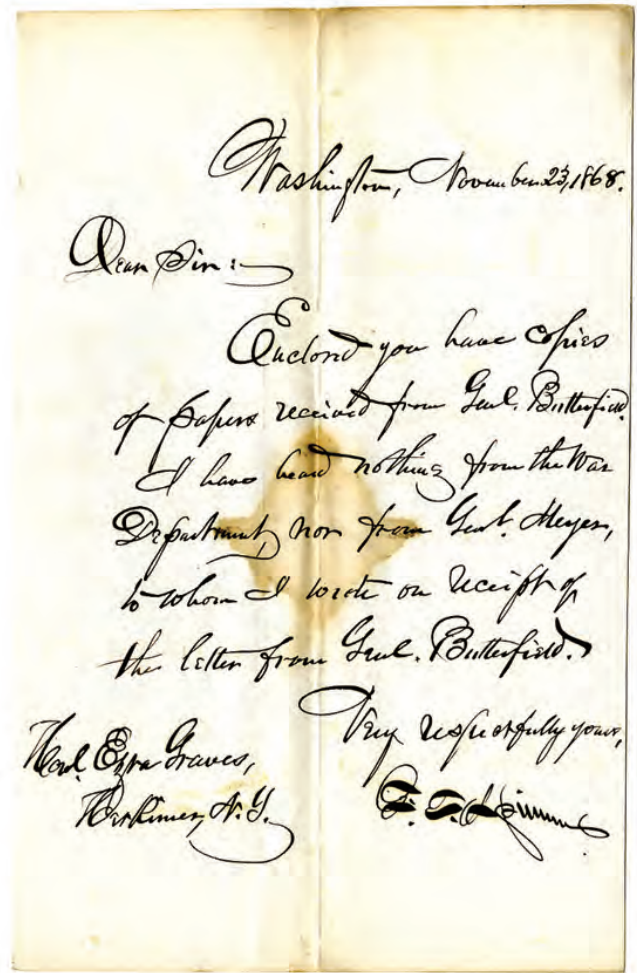 Washington, November 23, 1868.
Dear Sir:
Enclosed you have copies
of papers received from Genl. Butterfield.
I have heard nothing from the War
Department, nor from Genl. Meyer,
to whom I wrote on receipt of
the letter from Genl. Butterfield.
Very respectfully yours,
Hon. Ezra Graves,
Herkimer, N.Y.